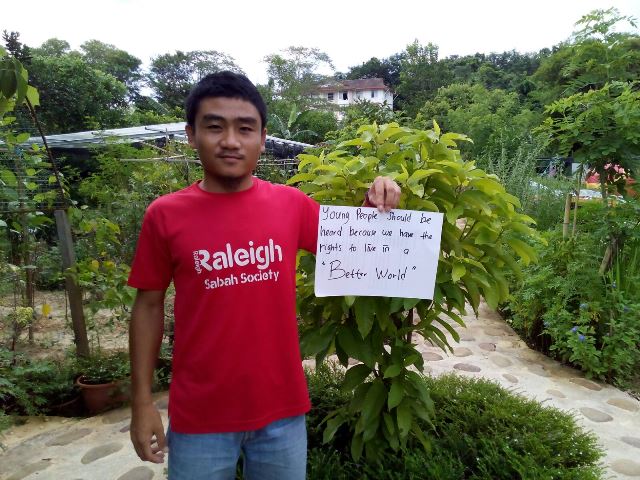 Raleigh
Sabah Society
Young People should be
heard because we have the
rights to live in a
"Better World"